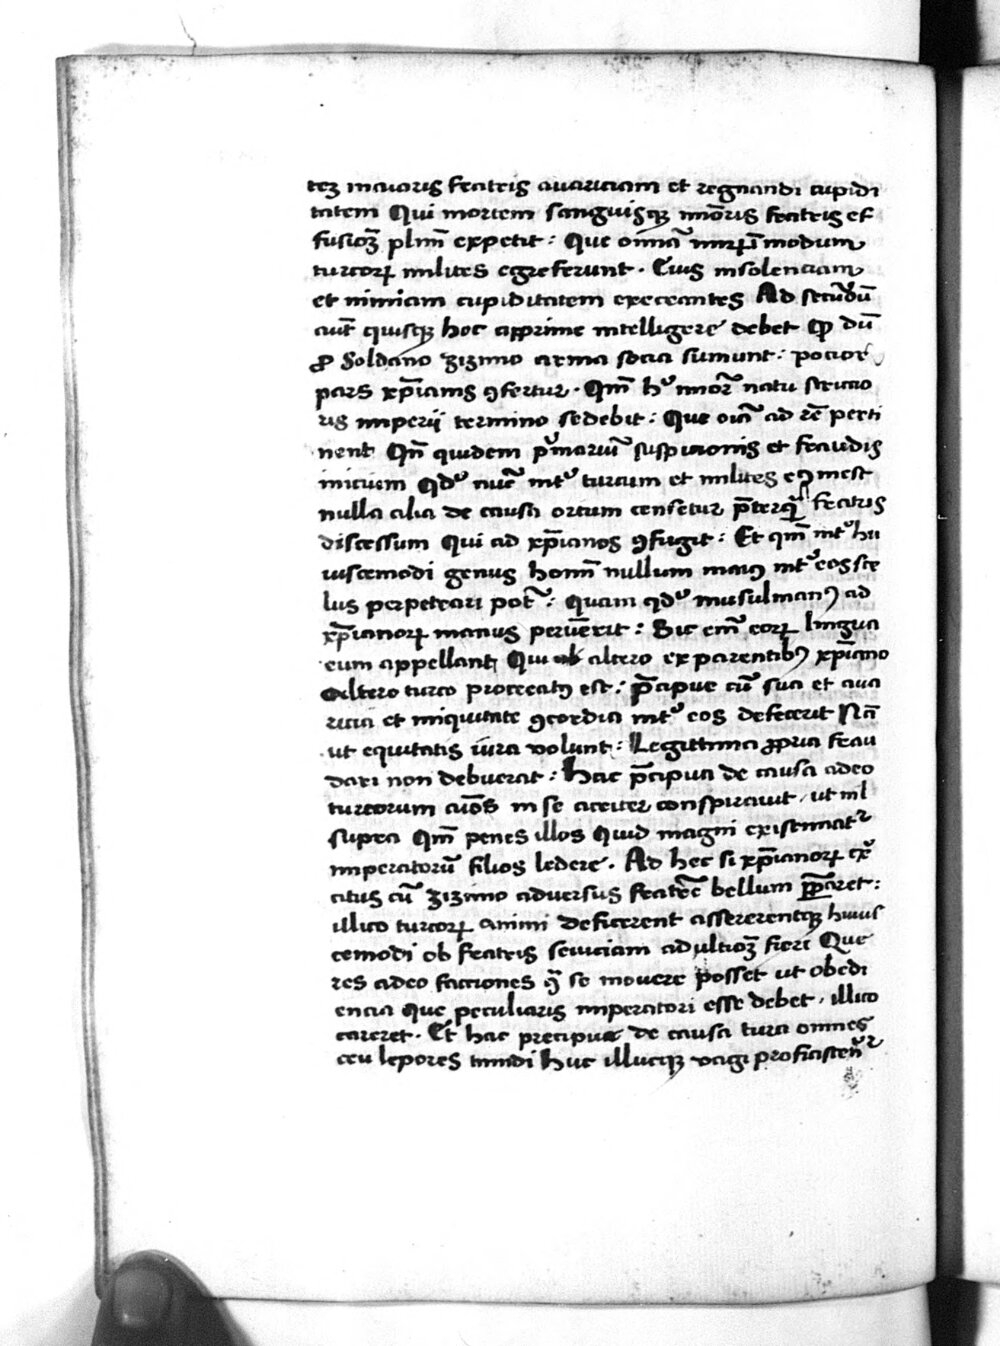 tez maioris fratris auariciam et regnandi cupidi
tatem Qui mortem sanguisqꝫ mĩoris fratris ef
fusioꝫ plm̃ expetit : Que om̃ia mirũ modum
turcoꝝ milites egre ferunt · Eius insolenciam
et nimiam cupiditatem execrantes Ad secũdũ
aut̃ quisqꝫ hoc apprime intelligere debet ꝙ dũ
ꝓ Soldano zizimo arma socia sumunt : pocior
pars xp̃ianis ꝯfertur · Qm̃ hꝰ minor̃ natu
ris imperij termino sedebit : Que oĩa ad rẽ perti
nent Qñ quidem p̃mariũ suspicionis et fraudis
inicium nũc int̃ turcum et milites eꝯ inest
nulla alia de causa ortum censetur p̃terq̃ fratris
discessum Qui ad xp̃ianos ꝯfugit : Et qm̃ int̃ hu
iuscemodi genus hom̃ nullum maiꝯ int̃ eos sce
lus perpetrari pot̃ : Quam musulmanꝯ ad
xp̃ianoꝝ manus peruẽerit : Sic em̃ eoꝝ lingua
eum appellant Qui ab altero ex parentibꝯ xp̃iano
altero turco procreatꝯ est : p̃cipue cũ sua et aua
ricia et iniquitate ꝯcordia int̃ eos defecerit Nã
ut equitatis iura volunt : Legittima ꝓpria frau
dari non debuerat : Hac p̃cipua de causa adeo
turcorum aĩos in se acriter conspirauit, ut nil
supra Qm̃ penes illos Quid magni existimat̃
imperatorũ filios ledere · Ad hec si xp̃ianoꝝ ex̃
citus cũ zizimo aduersus fratrẽ bellum p̃pararet :
illico turcoꝝ animi deficerent assererentqꝫ huius
cemodi ob fratris seuiciam ad ultioꝫ fieri Que
res adeo facciones q̃ se mouere posset ut obedi
encia que peculiaris imperatori esse debet, illico
careret · Et hac precipue de causa tura omnes
ceu lepores timidi huc illucqꝫ vagi proficiscẽt̃